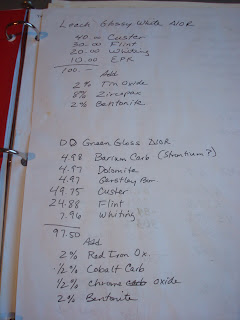 Leach Glossy White Δ10R
40.— Custer
30.00 Flint
20.00 Whiting
10.00 EPK
100.—
Add
2% Tin Oxide
8% Zircopax
2% Bentonite
DD Green Gloss Δ10R
4.98 Barium Carb (Strontium?)
4.97 Dolomite
4.97 Gerstley Bor
49.75 Custer
24.88 Flint
7.96 Whiting
97.50
Add
2% Red Iron Ox.
1/2% Cobalt Carb
1/2% Chrome oxide
2% Bentonite